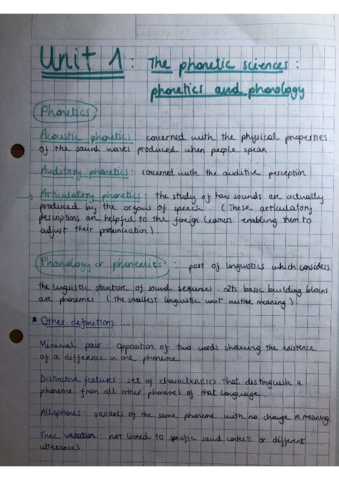 Unit 1: The phonetic sciences:
phonetics and phonology
Phonetics
Acoustic phonetics: concerned with the physical properties
of the sound waves produced when people speak
Auditory phonetics: concerned with the auditive perception
→ Articulatory phonetics: the study of how sounds are actually
produced by the organs of speech. (These articulatory
descriptions are helpful to the foreign learners enabling them to
adjust their pronunciation).
Phonology or phonemics: part of linguistics which considers
the linguistic structure of sound sequences. Its basic building blocks
are phonemes (the smallest linguistic unit without meaning).
* Other definitions...
Minimal pair: opposition of two words showing the existence
of a difference in one phoneme
Distinctive features: set of characteristics that distinguish a
phoneme from all other phonemes of that language
Allophones: variants of the same phoneme with no change in meaning
Free variation: not linked to specific sound contexts or different
utterances